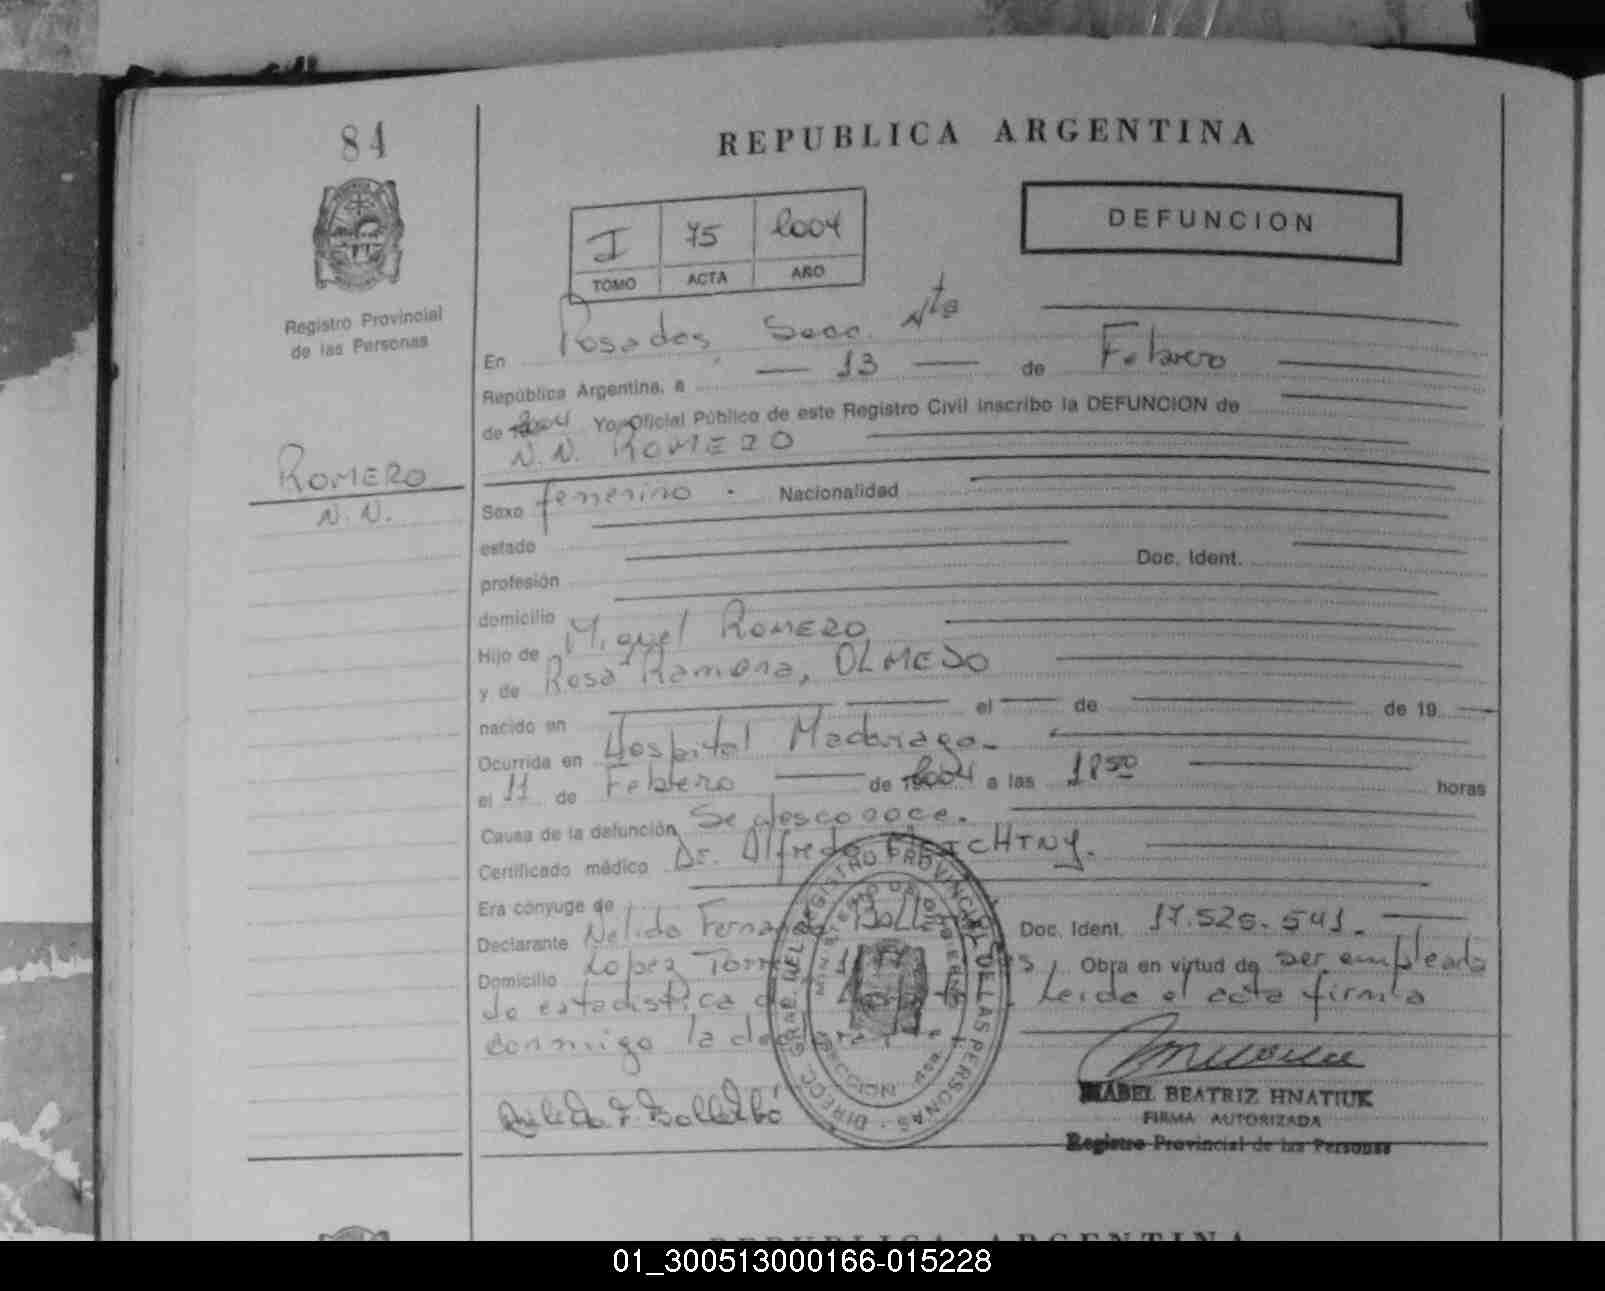 84
REPUBLICA ARGENTINA
I 75 2004
TOMO ACTA AÑO
DEFUNCION
Registro Provincial
de las Personas
En Posadas Secc. Nta
República Argentina, a 13 de Febrero
de 2004 Yo, Oficial Público de este Registro Civil inscribo la DEFUNCION de
N.N. ROMERO
ROMERO
N.N.
Sexo femenino. Nacionalidad
estado
profesión Doc. Ident.
domicilio
Hijo de Miguel ROMERO
y de Rosa Ramona, OLMEDO
nacido en el de de 19
Ocurrida en Hospital Madariaga.
el 11 de Febrero de 2004 a las 18 50 horas
Causa de la defunción Se desconoce.
Certificado médico Dr. Alfredo
Era cónyuge de
Declarante Nelida Doc. Ident. 17.525.541.
Domicilio Lopez Obra en virtud de ser empleada
de estadistica Leida el acta firma
conmigo la
DIRECC. GRAL. DEL REGISTRO PROVINCIAL DE LAS PERSONAS
MINISTERIO DE GOBIERNO
ISABEL BEATRIZ HNATIUK
FIRMA AUTORIZADA
Registro Provincial de las Personas
REPUBLICA ARGENTINA
01_300513000166-015228